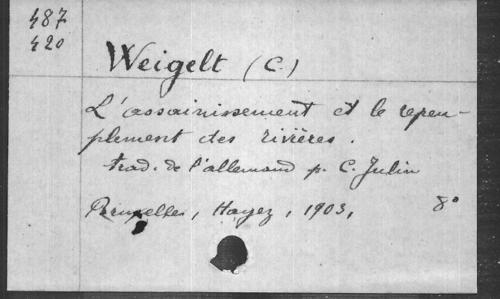 487
420
Weigelt (C.)
L'assainissement et le repeu-
plement des rivières.
trad. de l'allemand p. C. Julin
Bruxelles, Hayez, 1903, 8°